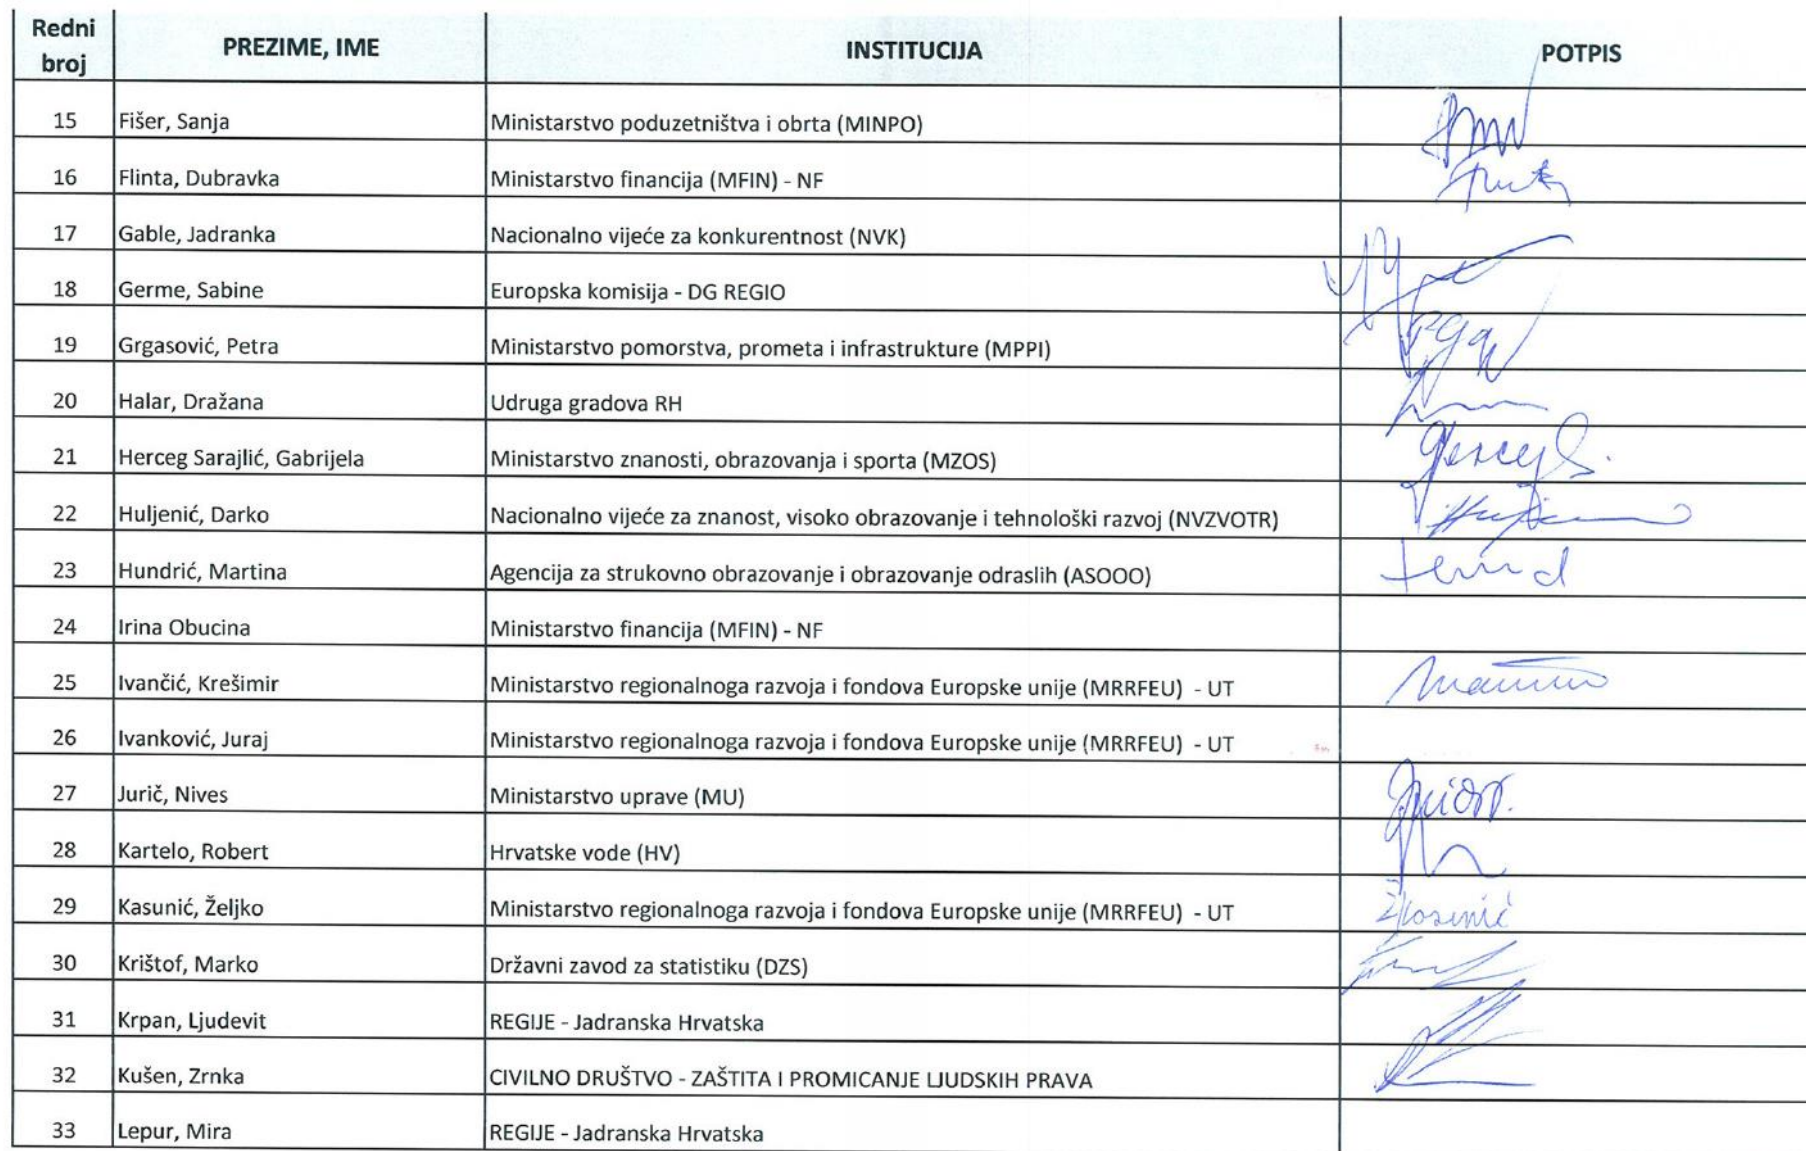 Redni broj PREZIME, IME INSTITUCIJA POTPIS
15 Fišer, Sanja Ministarstvo poduzetništva i obrta (MINPO)
16 Flinta, Dubravka Ministarstvo financija (MFIN) - NF
17 Gable, Jadranka Nacionalno vijeće za konkurentnost (NVK)
18 Germe, Sabine Europska komisija - DG REGIO
19 Grgasović, Petra Ministarstvo pomorstva, prometa i infrastrukture (MPPI)
20 Halar, Dražana Udruga gradova RH
21 Herceg Sarajlić, Gabrijela Ministarstvo znanosti, obrazovanja i sporta (MZOS)
22 Huljenić, Darko Nacionalno vijeće za znanost, visoko obrazovanje i tehnološki razvoj (NVZVOTR)
23 Hundrić, Martina Agencija za strukovno obrazovanje i obrazovanje odraslih (ASOOO)
24 Irina Obucina Ministarstvo financija (MFIN) - NF
25 Ivančić, Krešimir Ministarstvo regionalnoga razvoja i fondova Europske unije (MRRFEU) - UT
26 Ivanković, Juraj Ministarstvo regionalnoga razvoja i fondova Europske unije (MRRFEU) - UT
27 Jurič, Nives Ministarstvo uprave (MU)
28 Kartelo, Robert Hrvatske vode (HV)
29 Kasunić, Željko Ministarstvo regionalnoga razvoja i fondova Europske unije (MRRFEU) - UT
30 Krištof, Marko Državni zavod za statistiku (DZS)
31 Krpan, Ljudevit REGIJE - Jadranska Hrvatska
32 Kušen, Zrnka CIVILNO DRUŠTVO - ZAŠTITA I PROMICANJE LJUDSKIH PRAVA
33 Lepur, Mira REGIJE - Jadranska Hrvatska